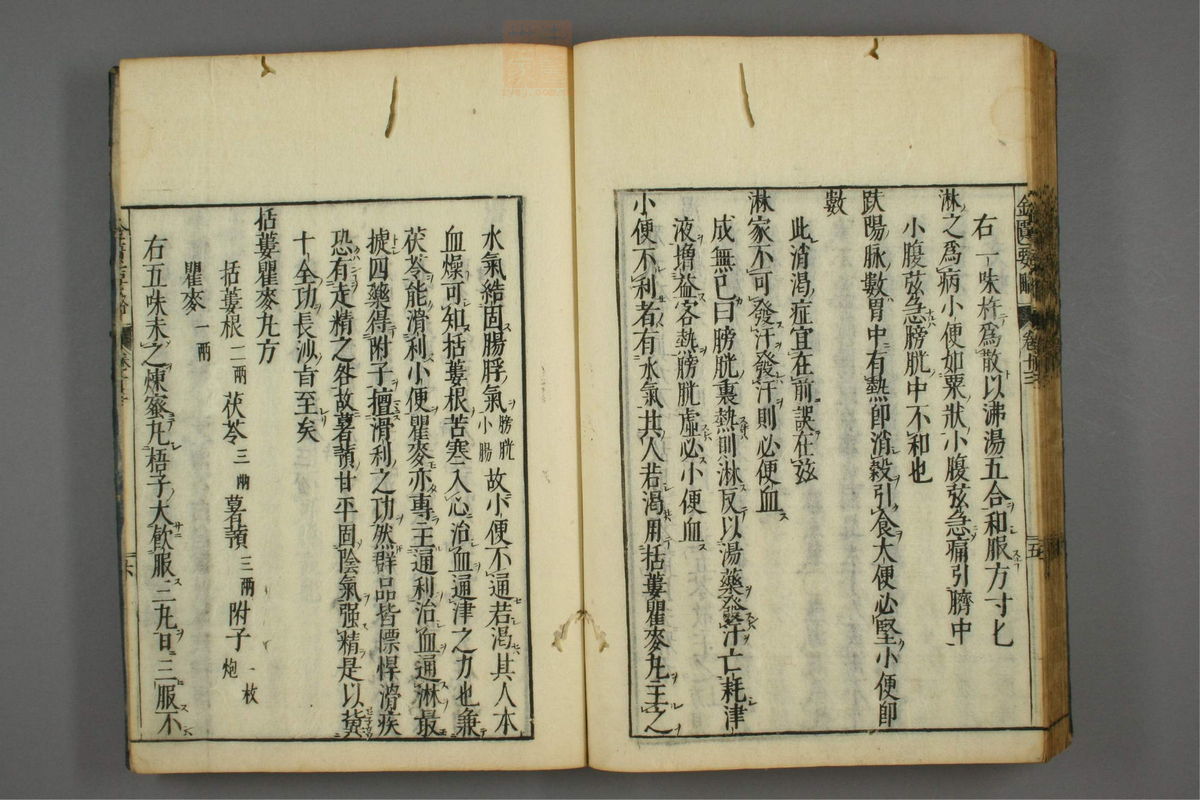 金匱要略 卷十三 五
右一味杵爲散以沸湯五合和服方寸匕
淋之爲病小便如粟狀小腹弦急痛引臍中
小腹弦急膀胱中不和也
趺陽脉數胃中有熱卽消穀引食大便必堅小便卽
數
此消渴症宜在前誤在玆
淋家不可發汗發汗則必便血
成無已曰膀胱裏熱則淋反以湯藥發汗亡耗津
液增益客熱膀胱虛必小便血
小便不利者有水氣其人若渴用括蔞瞿麥丸主之
水氣結固腸脬氣膀胱小腸故小便不通若渴其人本
血燥可知括蔞根苦寒入心治血通津之力也兼
茯苓能滑利小便瞿麥亦專主通利治血通淋最
捷四藥得附子擅滑利之功然群品皆慓悍滑疾
恐有走精之咎故薯蕷甘平固陰氣强精是以冀
十全功長沙旨至矣
括蔞瞿麥丸方
括蔞根二兩 茯苓三兩 薯蕷三兩 附子一枚炮
瞿麥一兩
右五味末之煉蜜丸梧子大飮服三丸日三服不
六